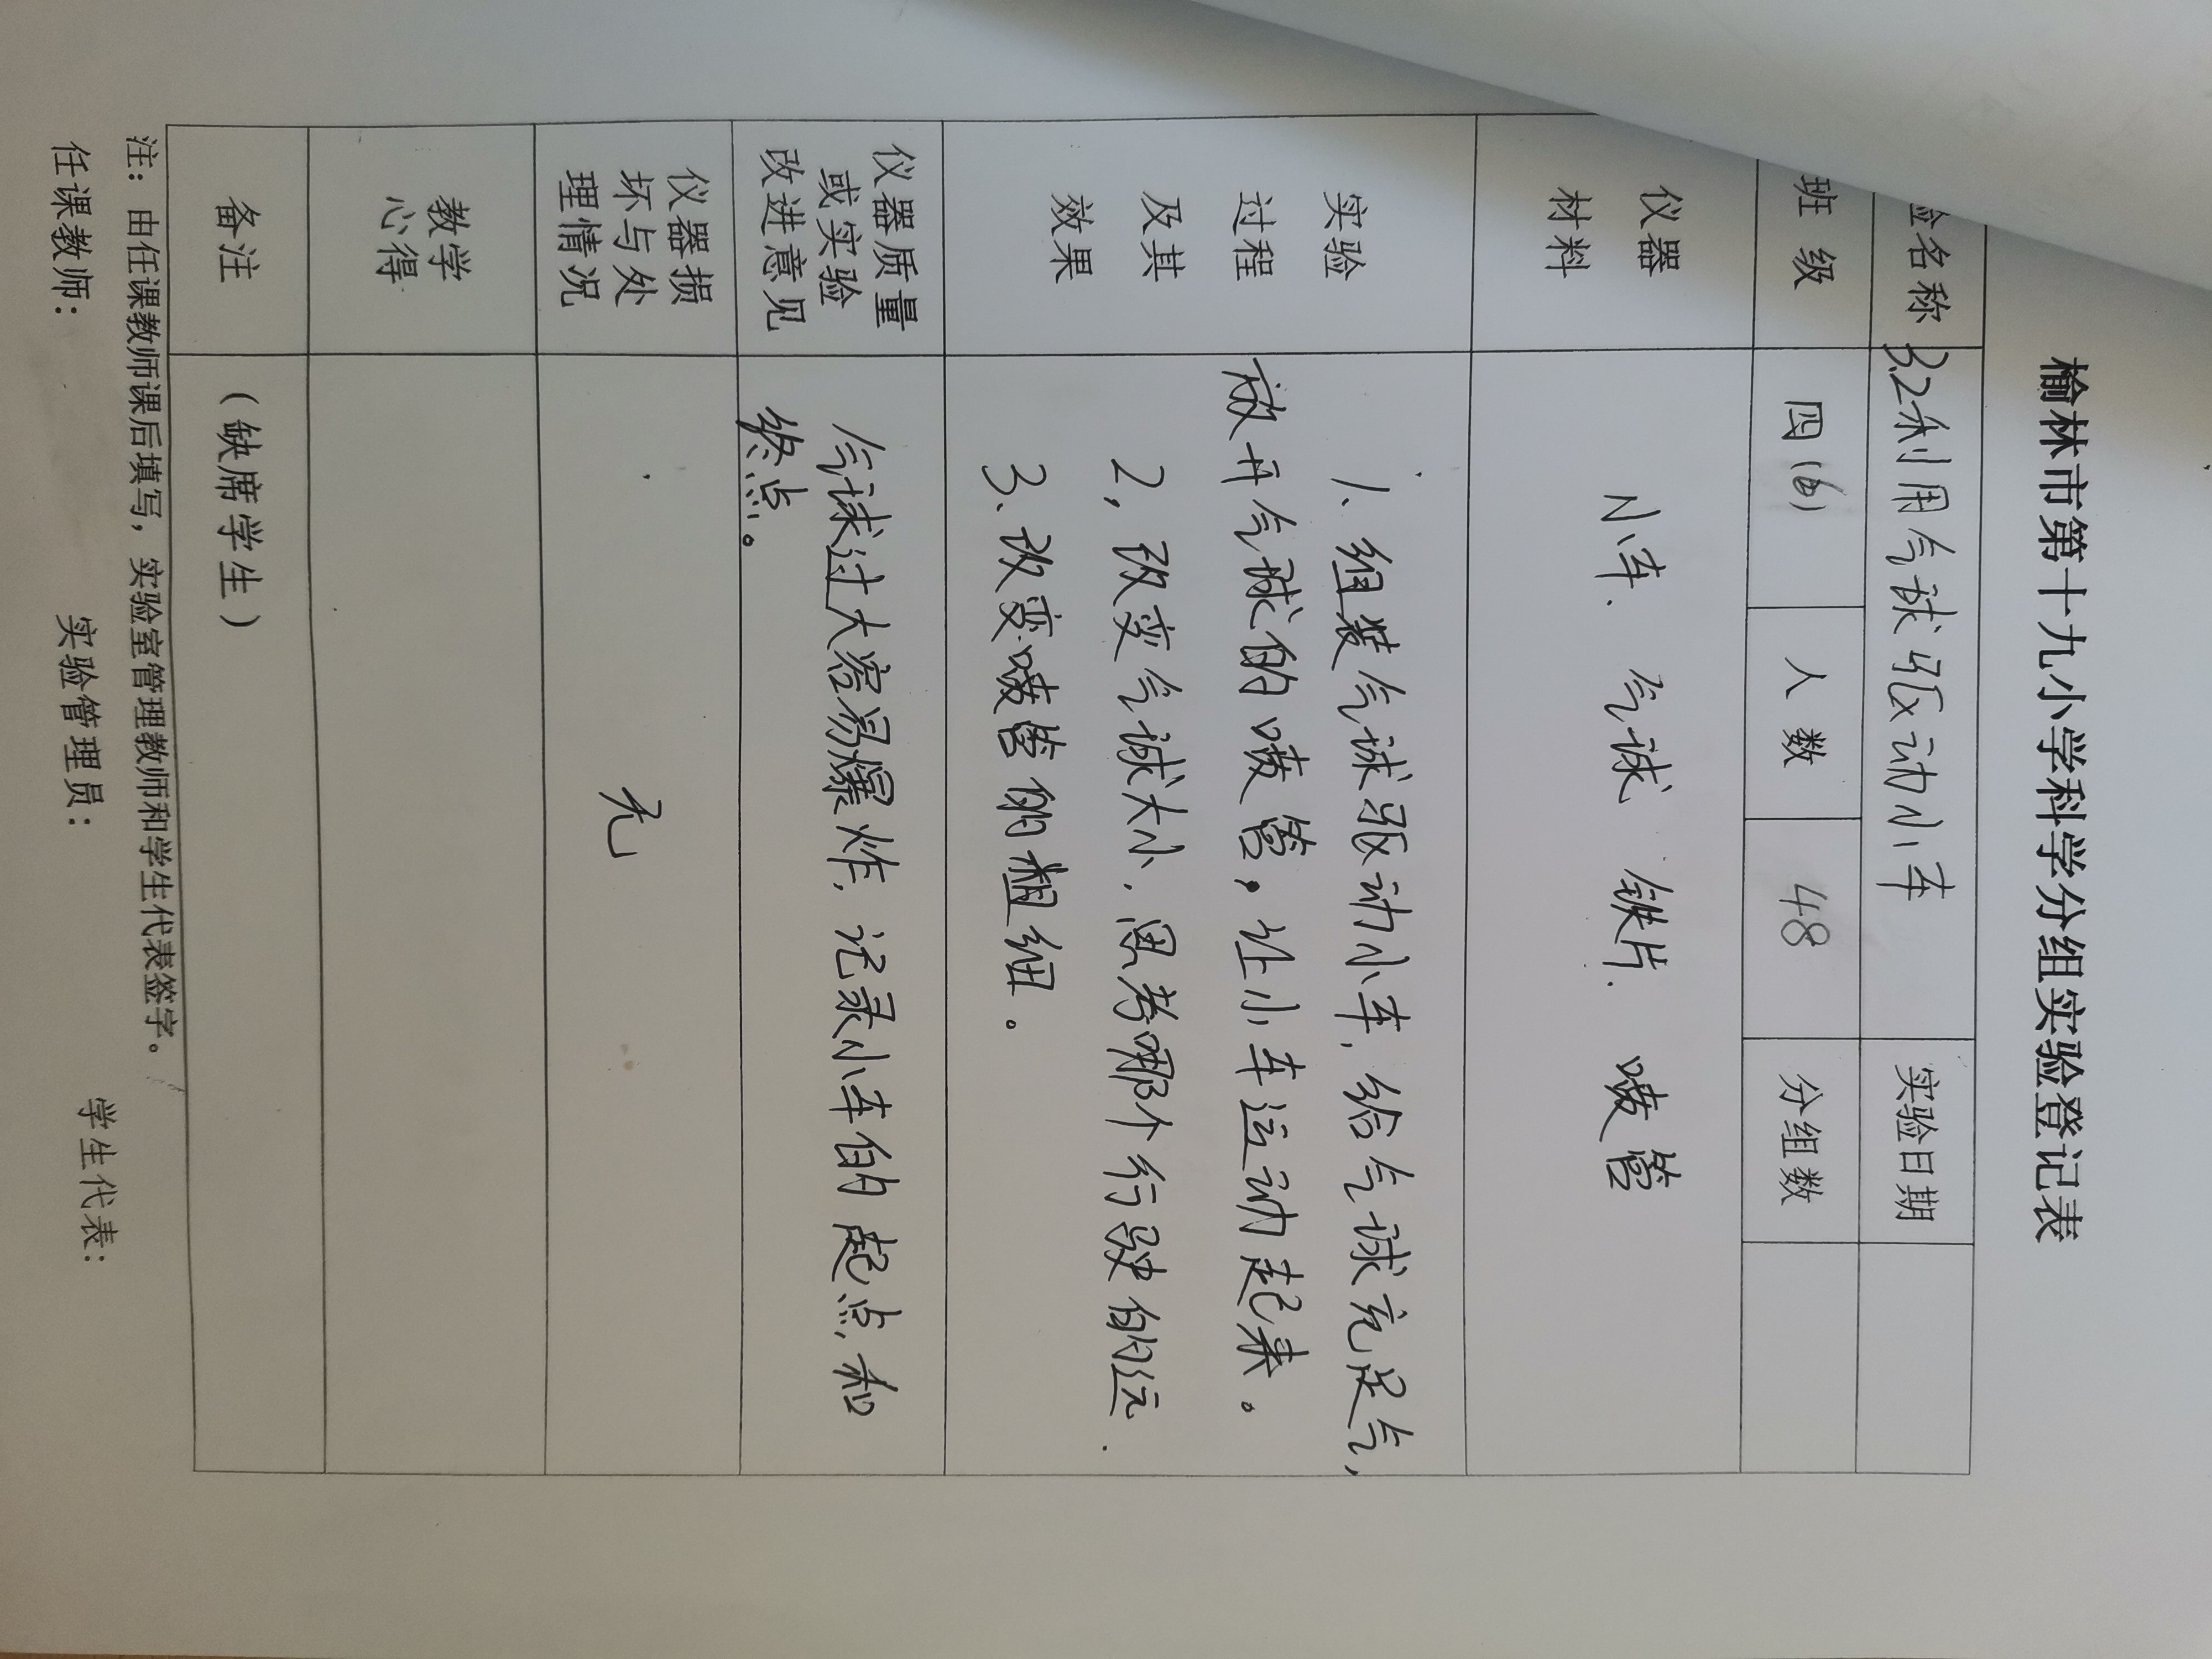 榆林市第十九小学科学分组实验登记表
验名称 3.2利用气球驱动小车 实验日期
班 级 四(6) 人 数 48 分组数
仪器
材料
小车、 气球、 铁片、 喷管
实验
过程
及其
效果
1、组装气球驱动小车,给气球充足气,
放开气球的喷管,让小车运动起来。
2,改变气球大小,思考哪个行驶的远.
3、改变喷管的粗细。
仪器质量
或实验
改进意见
气球过大容易爆炸,记录小车的起点和
终点。
仪器损
坏与处
理情况
无
教学
心得
备注 (缺席学生)
注:由任课教师课后填写,实验室管理教师和学生代表签字。
任课教师: 实验管理员: 学生代表: